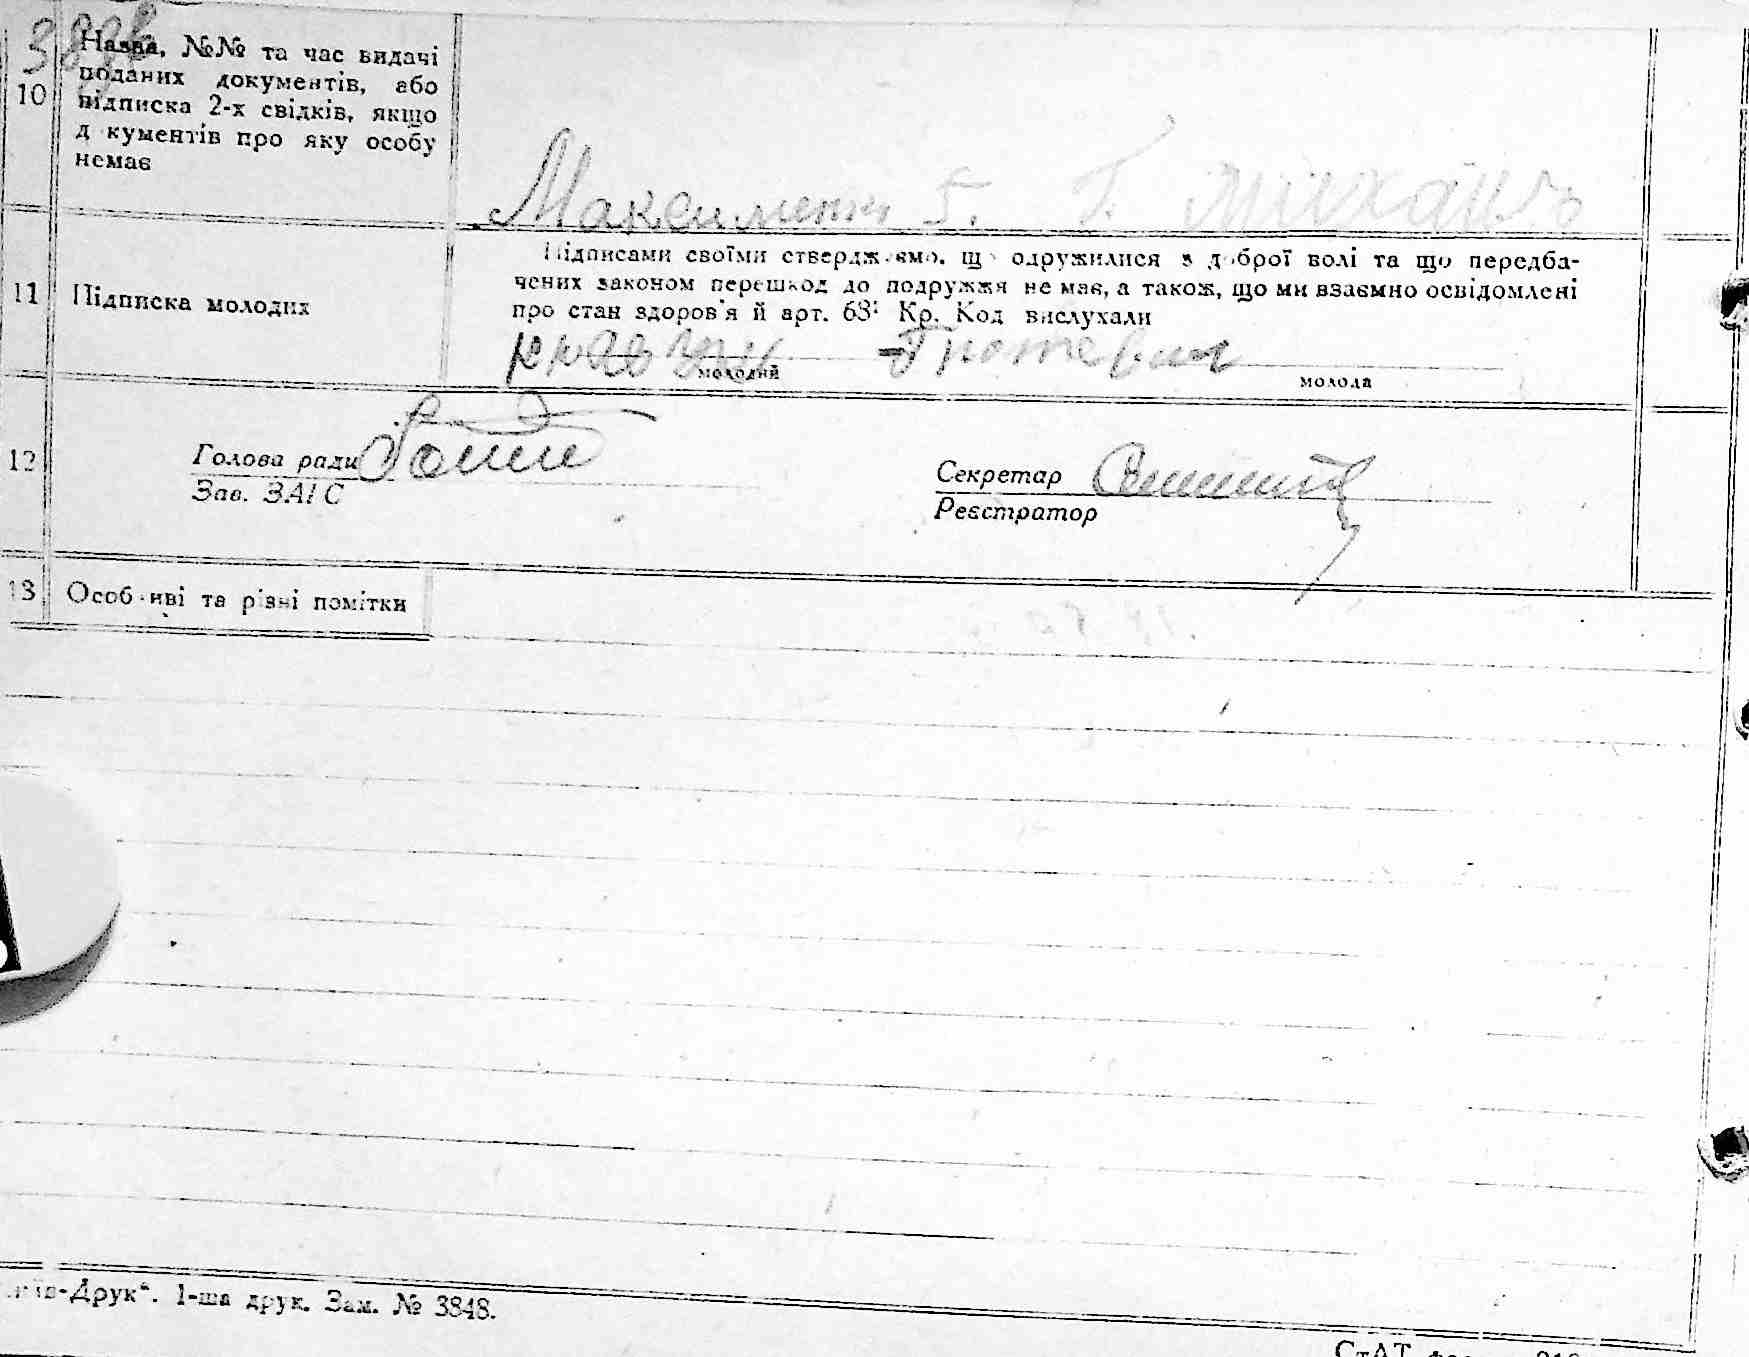 389зв
10 Назва, №№ та час видачі
поданих документів, або
підписка 2-х свідків, якщо
д кументів про яку особу
немає
Максименко Б. Г.
Підписами своїми стверджуємо, що одружилися з доброї волі та що передба-
11 Підписка молодих
чених законом перешкод до подружжя не має, а також, що ми взаємно освідомлені
про стан здоров'я й арт. 68¹ Кр. Код вислухали
молодий
молода
12 Голова ради
Секретар
Зав. ЗАГС
Реєстратор
13 Особливі та різні помітки
-Друк“. 1-ша друк. Зам. № 3848.
СтАТ